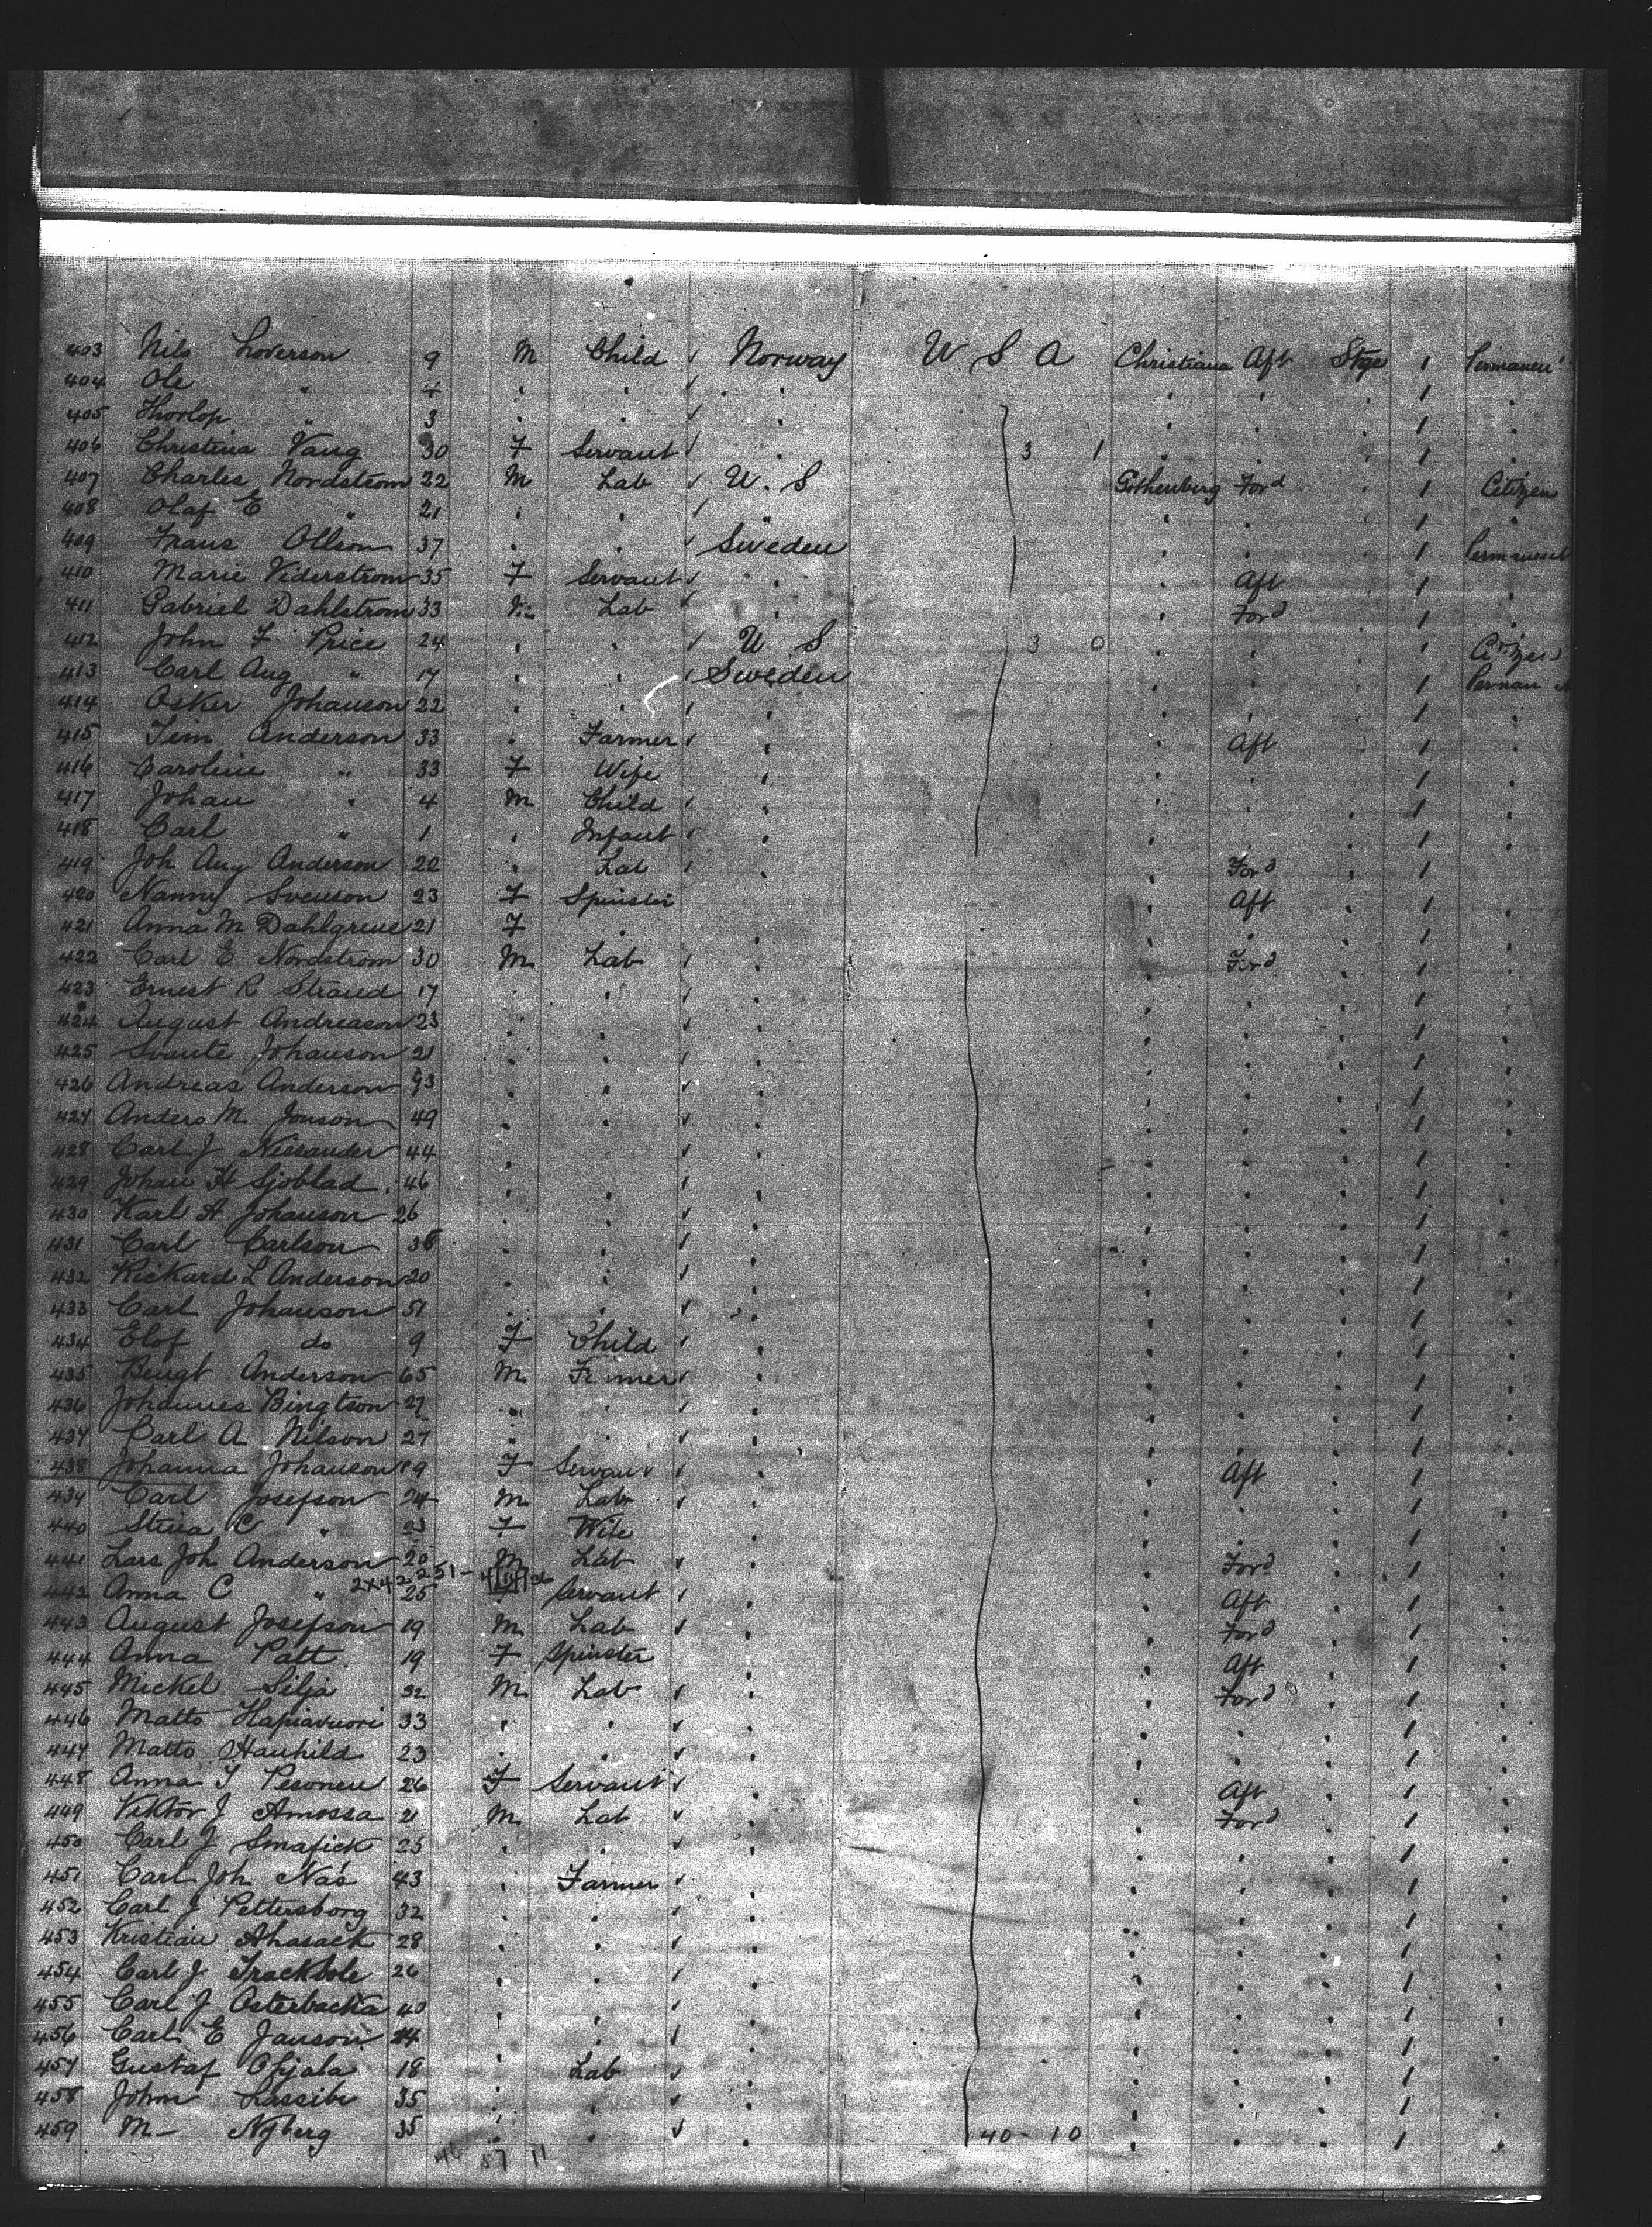 403 Nils Loverson 9 M Child Norway U S A Christiana Aft Stge 1 Permanen
404 Ole " 1
405 Thorlop " 3 1
406 Christina Vang 30 F Servant 3 1 1
407 Charles Nordstrom 22 M Lab U. S Gothenburg Ford 1 Citizen
408 Olaf E " 21 1
409 Frans Ollson 37 Sweden 1 Permanent
410 Marie Viderstrom 35 F Servant Aft 1
411 Gabriel Dahlstrom 33 Lab Ford 1
412 John F Price 24 U S 3 0 1 Citizen
413 Carl Aug " 17 Sweden 1
414 Osker Johanson 22 1
415 Anderson 33 Farmer Aft 1
416 Caroline " 33 F Wife 1
417 Johan " 4 M Child 1
418 Carl " 1 Infant 1
419 Joh Aug Anderson 20 Lab Ford 1
420 Nanny Svenson 23 F Spinster Aft 1
421 Anna M Dahlgrene 21 F 1
422 Carl E Nordstrom 30 M Lab Ford 1
423 Ernest R Strand 17 1
424 August Andreason 23 1
425 Svante Johanson 21 1
426 Andreas Anderson 1
427 Anders M Jonson 49 1
428 Carl J 44 1
429 Johan H Sjoblad 46 1
430 Karl A Johanson 26 1
431 Carl Carlson 38 1
432 Rickard L Anderson 20 1
433 Carl Johanson 51 1
434 Elof do 9 F Child 1
435 Bengt Anderson 65 M Farmer 1
436 Johannes Bingtson 27 1
437 Carl A Nilson 27 1
438 Johanna Johanson 19 F Servant Aft 1
439 Carl Josefson 24 M Lab 1
440 Stina C " 23 F Wife 1
441 Lars Joh Anderson 20 M Lab Ford 1
442 Anna C " 25 Servant Aft 1
443 August Josefson 19 M Lab Ford 1
444 Anna Patt 19 F Spinster Aft 1
445 Mickel Silja 32 M Lab Ford 1
446 Matto Hapiavuori 33 1
447 Matto Hanhild 23 1
448 Anna Pesonen 26 F Servant Aft 1
449 Viktor J Amossa 21 M Lab Ford 1
450 Carl J Smafick 25 1
451 Carl Joh Nas 43 Farmer 1
452 Carl J Pettersborg 32 1
453 Kristian Ahasack 28 1
454 Carl J Trackbole 26 1
455 Carl J Osterbacka 40 1
456 Carl E Janson 44 1
457 Gustaf Ojala 18 Lab 1
458 John Lassibi 35 1
459 M- Nyberg 35 40 - 10 1
57 11